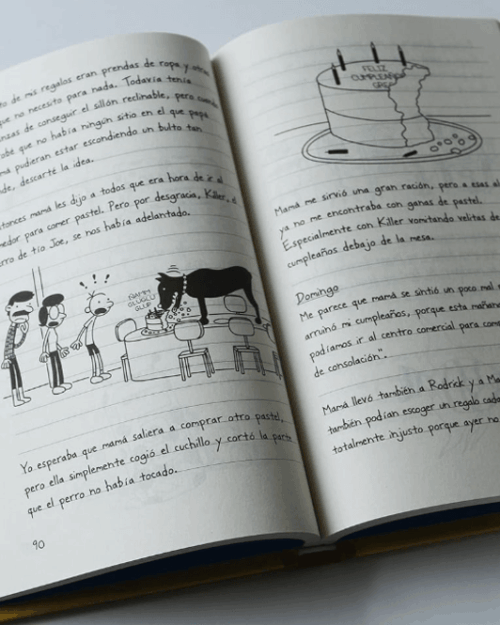 to de mis regalos eran prendas de ropa y otras
que no necesito para nada. Todavía tenía
anzas de conseguir el sillón reclinable, pero cuando
ube que no había ningún sitio en el que papá
má pudieran estar escondiendo un bulto tan
nde, descarté la idea.
ntonces mamá les dijo a todos que era hora de ir al
medor para comer pastel. Pero por desgracia, Killer, e
erro de tío Joe, se nos había adelantado.
! ! !
ÑAMM
GLUGLU
GLUP
Yo esperaba que mamá saliera a comprar otro pastel,
pero ella simplemente cogió el cuchillo y cortó la parte
que el perro no había tocado.
90
FELIZ
CUMPLEAÑO
GREG
Mamá me sirvió una gran ración, pero a esas al
ya no me encontraba con ganas de pastel.
Especialmente con Killer vomitando velitas de
cumpleaños debajo de la mesa.
Domingo
Me parece que mamá se sintió un poco mal
arruinó mi cumpleaños, porque esta mañana
podíamos ir al centro comercial para com
de consolación".
Mamá llevó también a Rodrick y a Ma
también podían escoger un regalo cada
totalmente injusto porque ayer no